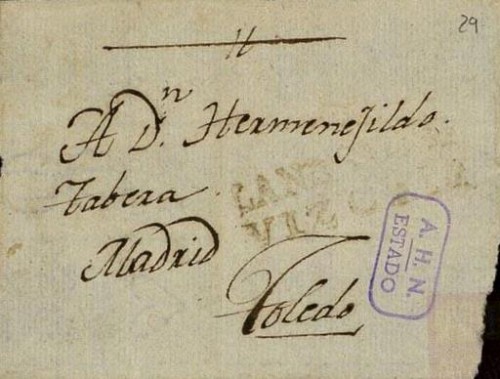 29
11
A Dn. Hermenejildo.
Tabera.
Madrid
Toledo
A. H. N.
ESTADO